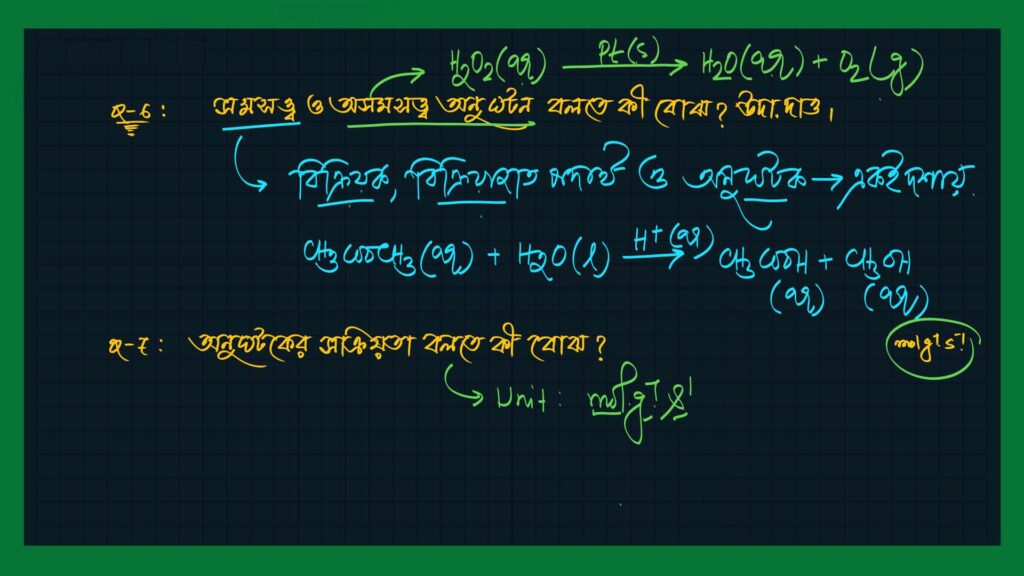 H₂O₂(aq) —Pt(s)→ H₂O(aq) + O₂(g)
Q-6: সমসত্ত্ব ও অসমসত্ত্ব অনুঘটন বলতে কী বোঝ? উদা. দাও।
বিক্রিয়ক, বিক্রিয়াজাত পদার্থ ও অনুঘটক → একই দশায়
CH₃COOCH₃(aq) + H₂O(l) —H⁺(aq)→ CH₃COOH + CH₃OH
(aq) (aq)
Q-7: অনুঘটকের সক্রিয়তা বলতে কী বোঝ?
mol g⁻¹ s⁻¹
Unit: mol g⁻¹ s⁻¹